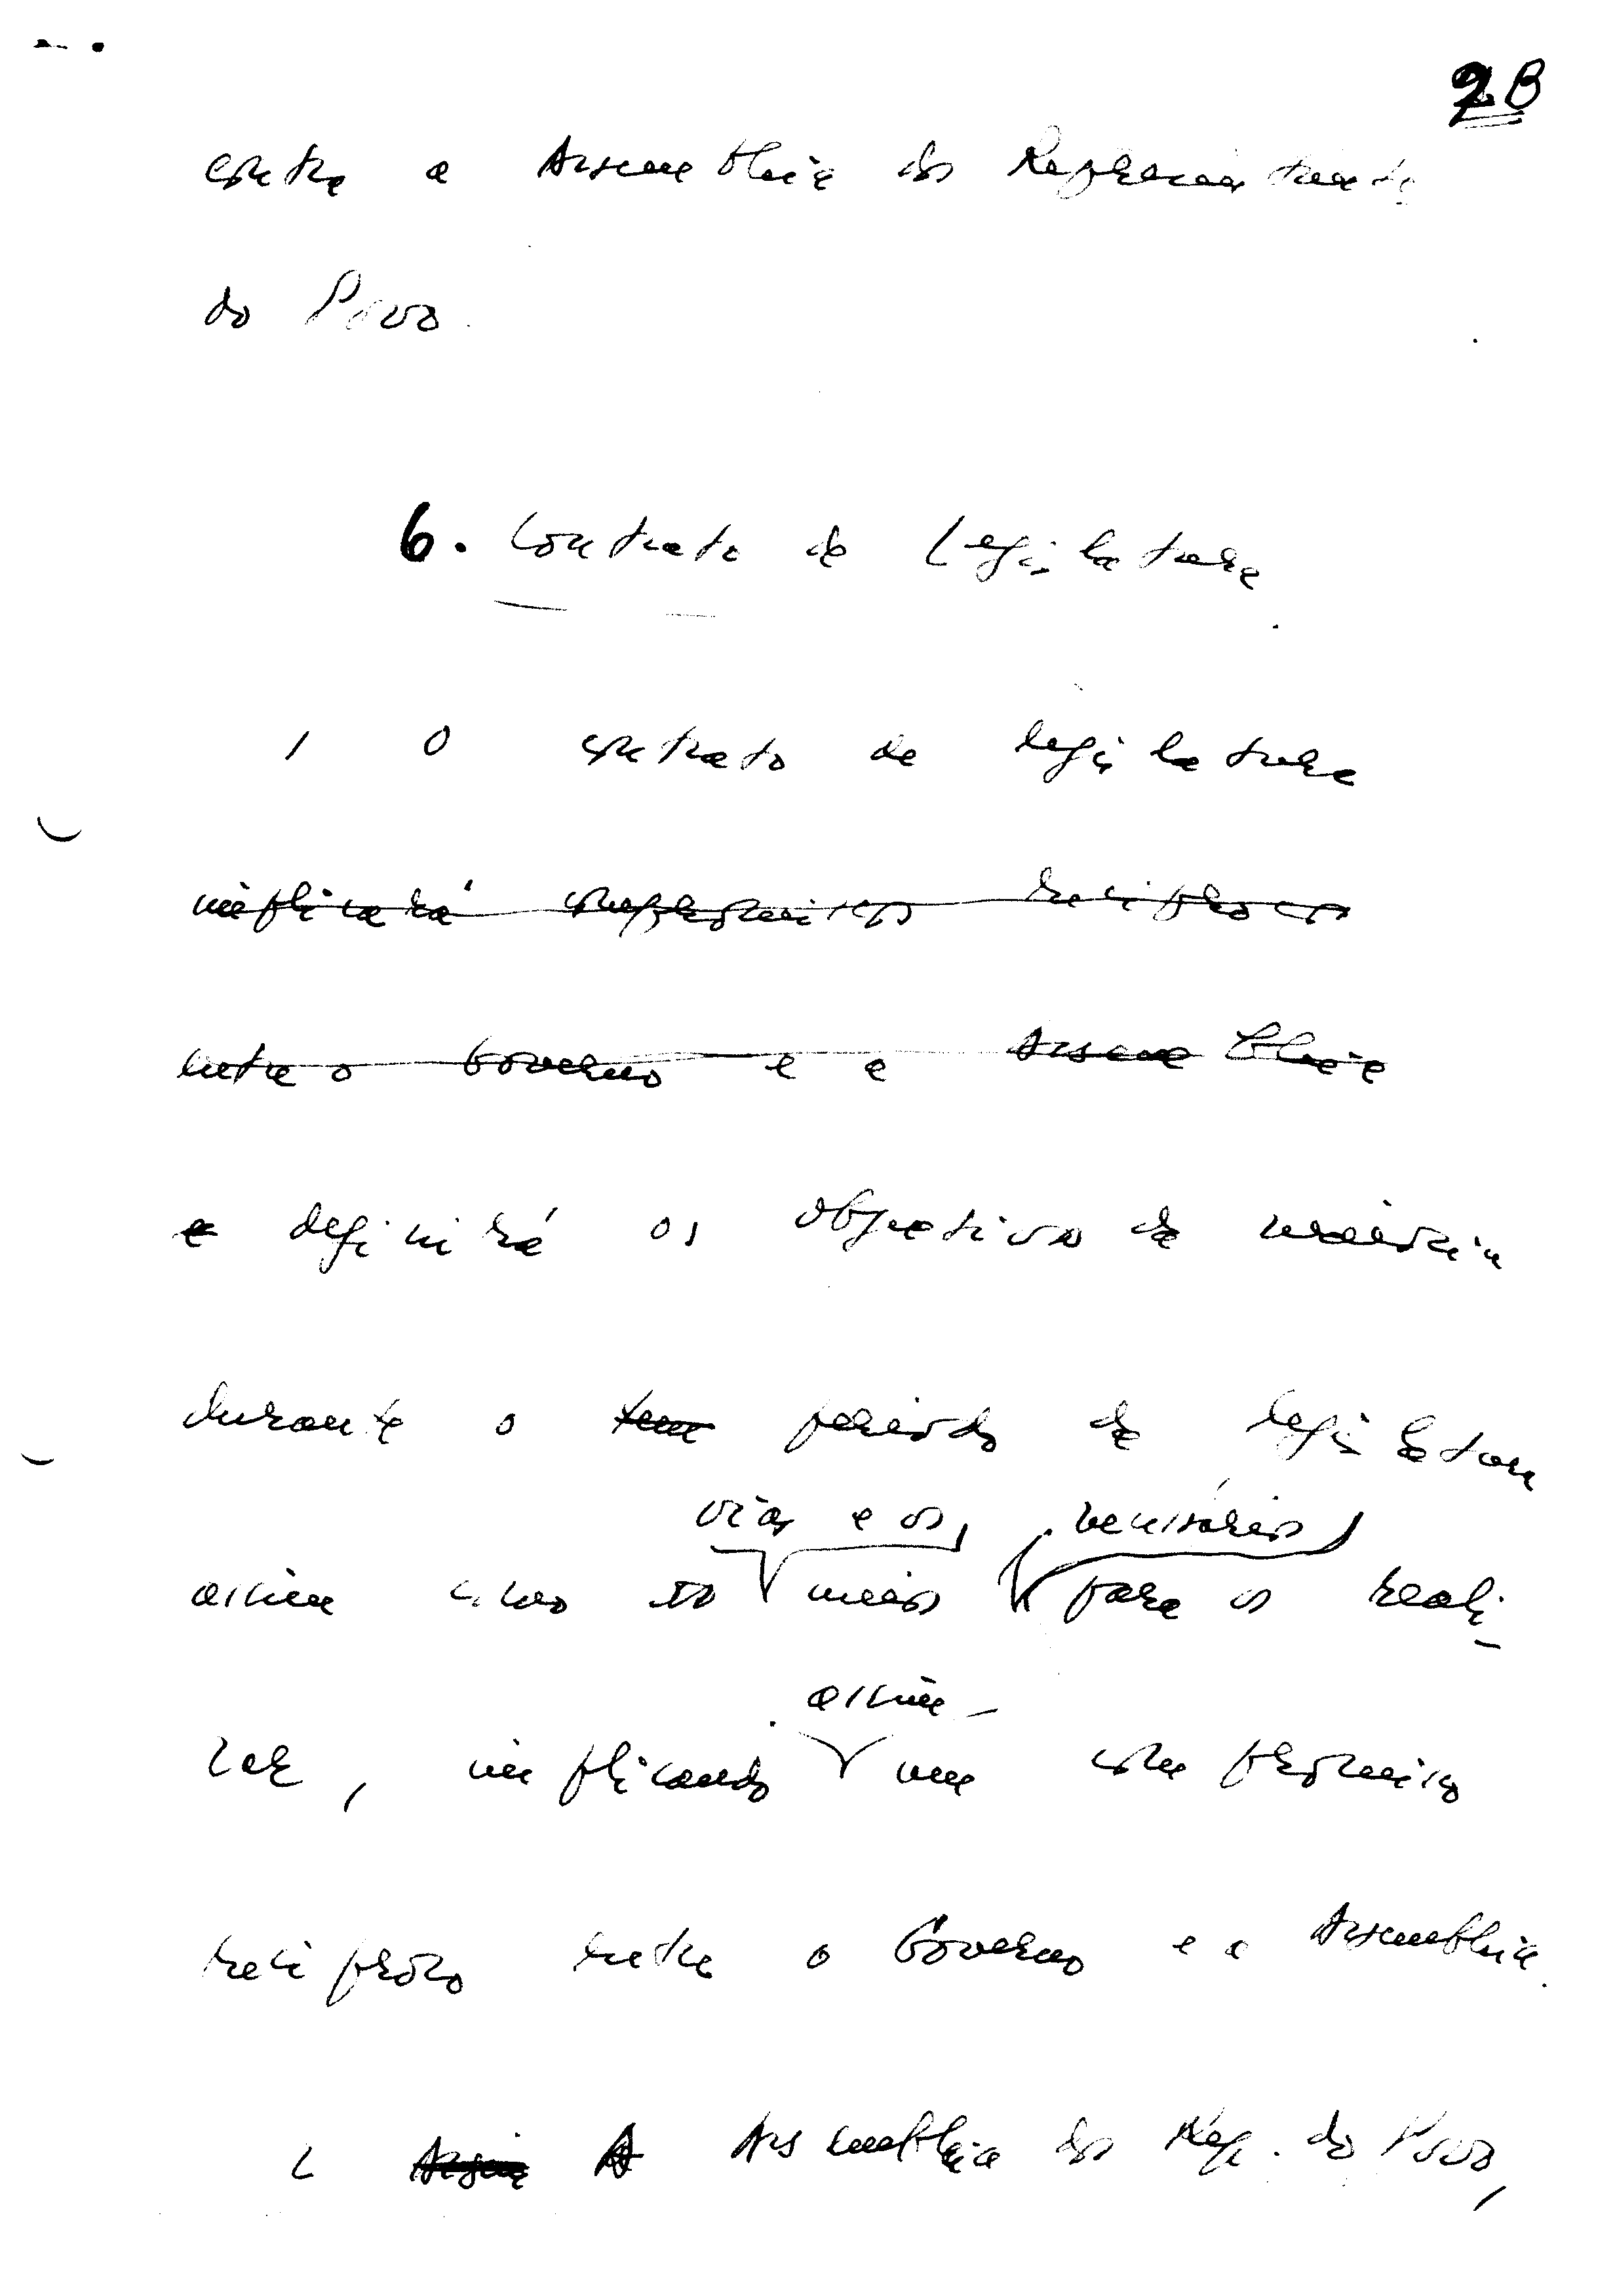 28
contra a Assembleia dos Representantes
do Povo.
6. Contrato de Legislatura
1 O contrato de legislatura
implicará compromissos recíprocos
entre o Governo e a Assembleia
e definirá os objectivos da maioria
durante o tem período da legislatura
vias e os, necessários
assim como as meios para os reali-
assim
zar, implicando um compromisso
recíproco entre o Governo e a Assembleia.
2 Assim A Assembleia dos Rep. do Povo,